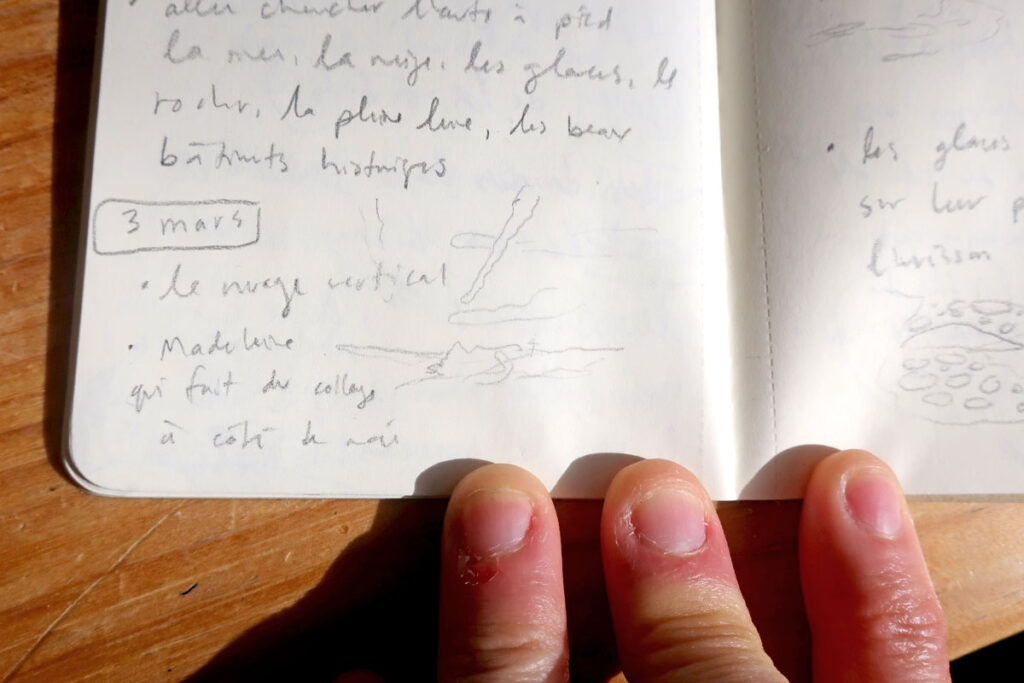 aller chercher l'auto à pied
la mer, la neige, les glaces, le
rocher, la pleine lune, les beaux
bâtiments historiques
3 mars
• le nuage vertical
• Madeleine
qui fait du collage
à côté de moi
• les glaces
sur leur